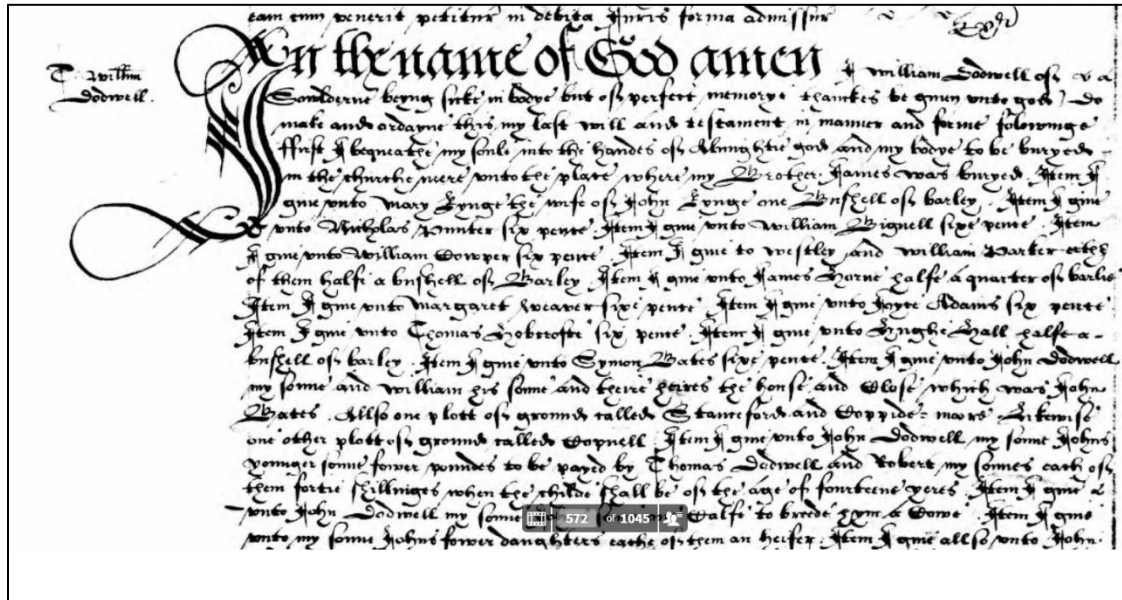 eam cum venerit petitur in debita Juris forma admissur
T. Willm Dodwell.
In the name of God amen I William Dodwell of
Sowlderne beyng sicke in bodye but of perfect memorye thanckes be given unto god Do
make and ordayne this my last will and testament in manner and forme folowinge
ffirst I bequeathe my soule into the handes of Almightie god and my bodye to be buryed
in the churche neere unto the place where my Brother James was buryed. Item I
give unto Mary Kynge the wife of John Kynge one Bushell of barley. Item I give
unto Nicholas Punter six pence. Item I give unto William Bignell sixe pence. Item
I give unto William Cowper six pence. Item I give to Westley and William Parker eche
of them halfe a bushell of Barley. Item I give unto James Horne halfe a quarter of barlie
Item I give unto Margaret Weaver sixe pence Item I give unto Joyce Adams six pence
Item I give unto Thomas six pence. Item I give unto Hughe Hall halfe a
bushell of barley. Item I give unto Symon Bates sixe pence. Item I give unto John Dodwell
my sonne and William his sonne and theire heires the house and Close which was John
Bates. Allso one plott of grounde called Staneford and moore Likewise
one other plott of grounde called Item I give unto John Dodwell my sonne Johns
younger sonne fower poundes to be payed by Thomas Dodwell and Robert my sonnes each of
them fortie shillinges when the childe shall be of the age of fourteene yeres. Item I give
unto John Dodwell my sonne Calfe to breede hym a Cowe. Item I give
572 of 1045
unto my sonne Johns fower daughters eache of them an heifer. Item I give allso unto John